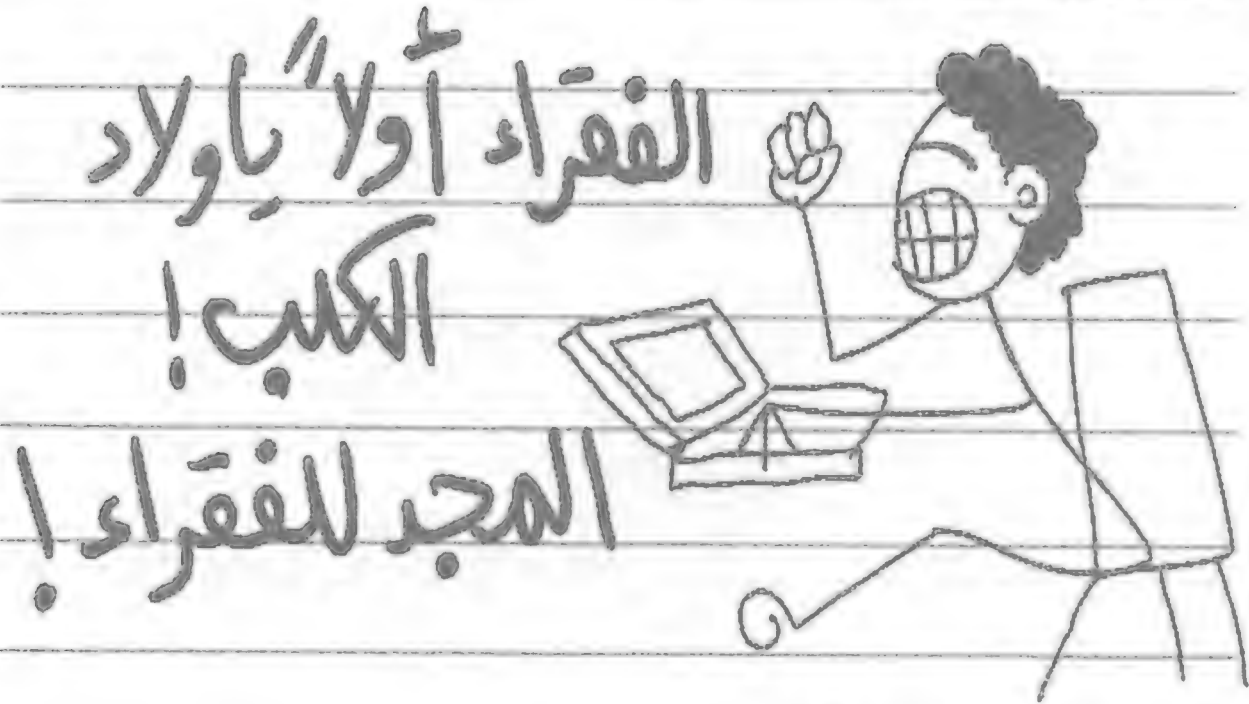 الفقَراء أَولاً يِاولاد
الكلب!
المجد للفقَراء!